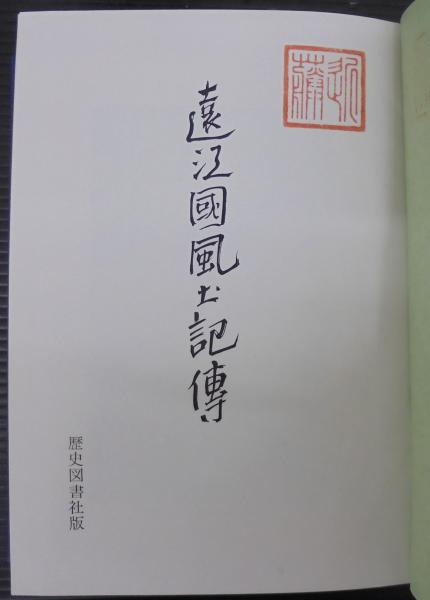 近藤
遠江國風土記傳
歴史図書社版